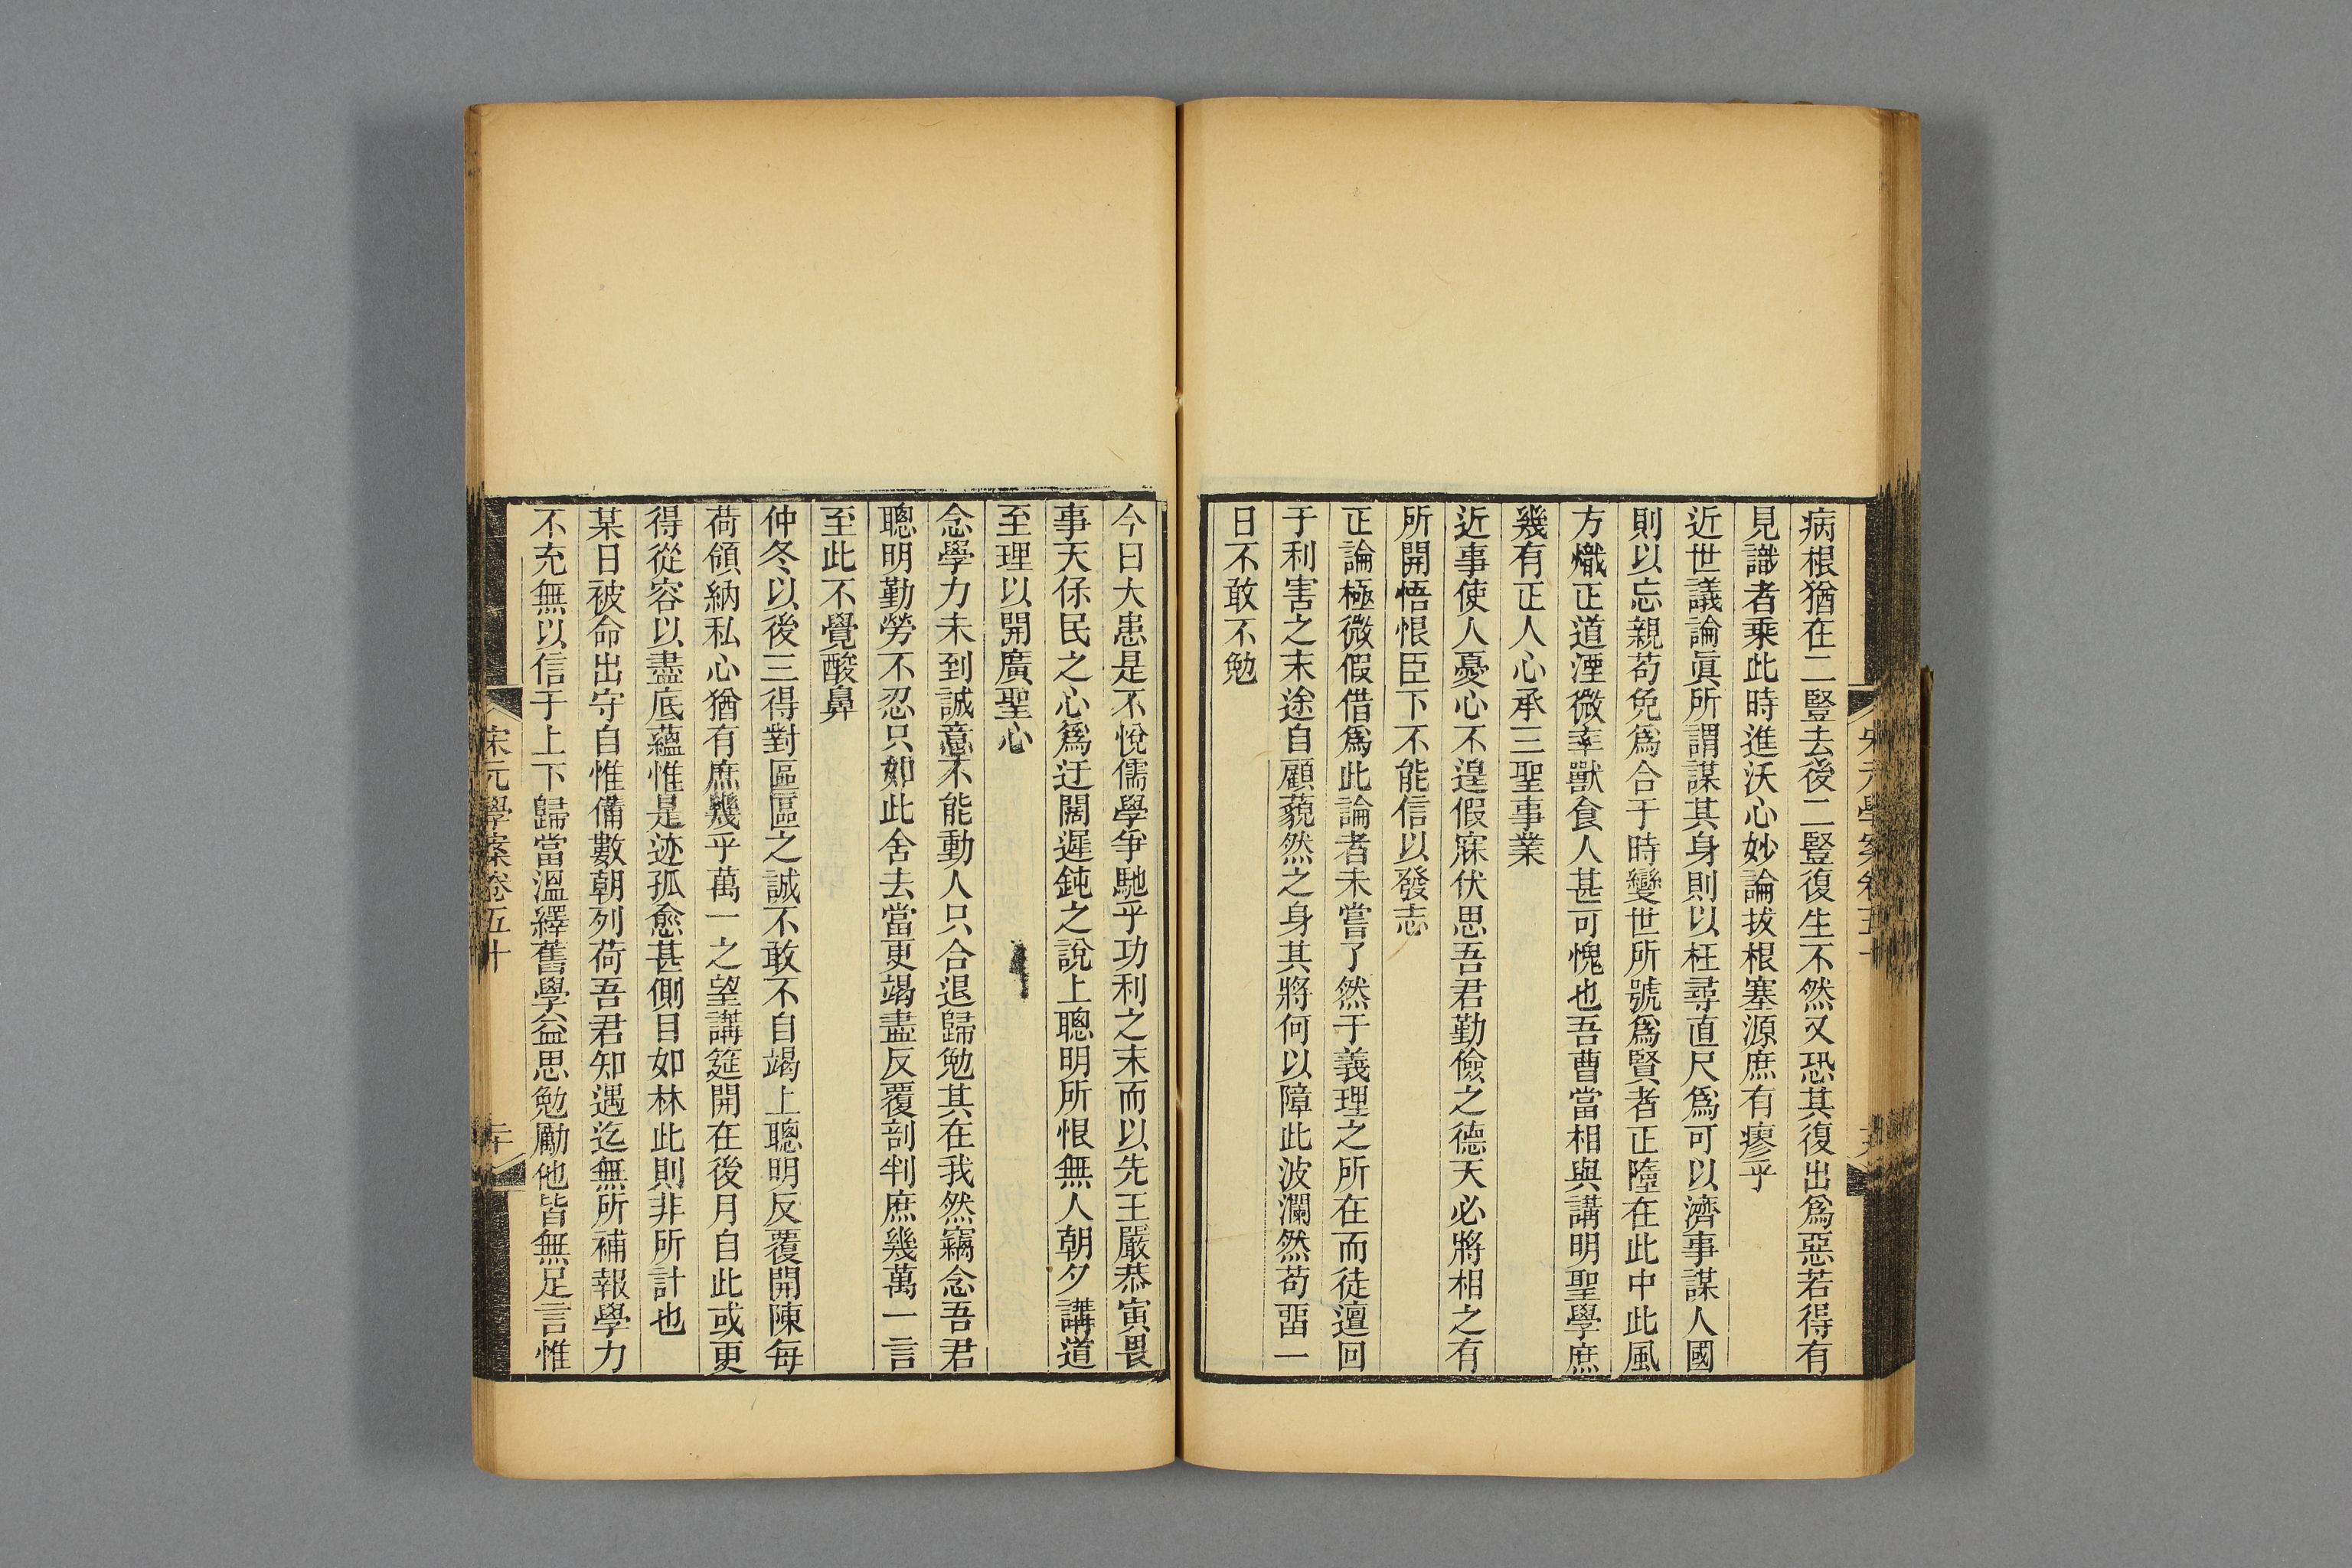 病根猶在二豎去後二豎復生不然又恐其復出爲惡若得有
見識者乘此時進沃心妙論拔根塞源庶有瘳乎
近世議論眞所謂謀其身則以枉尋直尺爲可以濟事謀人國
則以忘親苟免爲合于時變世所號爲賢者正墮在此中此風
方熾正道湮微率獸食人甚可愧也吾曹當相與講明聖學庶
幾有正人心承三聖事業
近事使人憂心不遑假寐伏思吾君勤儉之德天必將相之有
所開悟恨臣下不能信以發志
正論極微假借爲此論者未嘗了然于義理之所在而徒邅回
于利害之末途自顧藐然之身其將何以障此波瀾然苟畱一
日不敢不勉
宋元學案卷五十
今日大患是不悅儒學爭馳乎功利之末而以先王嚴恭寅畏
事天保民之心爲迂闊遲鈍之說上聰明所恨無人朝夕講道
至理以開廣聖心
念學力未到誠意不能動人只合退歸勉其在我然竊念吾君
聰明勤勞不忍只如此舍去當更竭盡反覆剖判庶幾萬一言
至此不覺酸鼻
仲冬以後三得對區區之誠不敢不自竭上聰明反覆開陳每
荷領納私心猶有庶幾乎萬一之望講筵開在後月自此或更
得從容以盡底蘊惟是迹孤愈甚側目如林此則非所計也
某日被命出守自惟備數朝列荷吾君知遇迄無所補報學力
不充無以信于上下歸當溫繹舊學益思勉勵他皆無足言惟
宋元學案卷五十